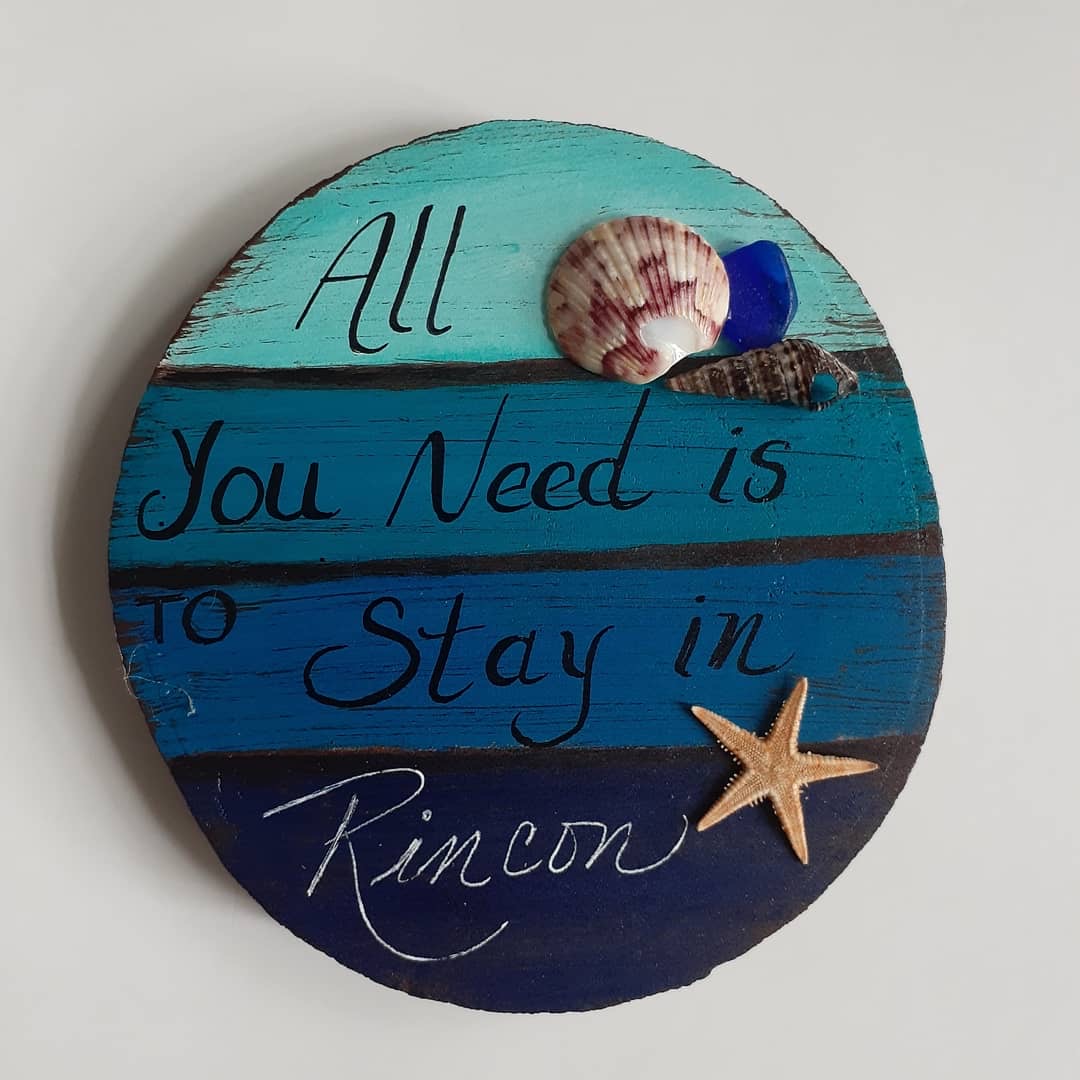 All
You Need is
TO Stay in
Rincon